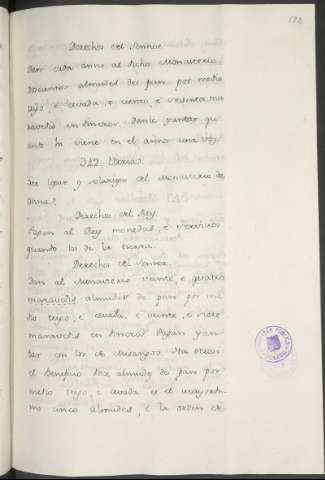 183
Derechos del Sennor.
Dan cada anno al dicho Monasterio
docientos almudes de pan por medio
trigo, e cevada, e ciento, e sesenta ma
ravedis en dineros. Danle yantar qu
ando hi viene en el anno una vez.
Este logar es solariego del Monasterio de
Derechos del Rey.
Pagan al Rey monedas, e servicios
quando los de la tierra.
Derechos del Sennor.
Dan al Monasterio veinte, e quatro
maravedis almudes de pan por me
dio trigo, e cevada, e veinte, e siete
maravedis en dineros. Pagan yan
tar con los de
el Beneficio doce almudes de pan por
medio trigo, e cevada, e el mayordo
mo cinco almudes, e la orden de